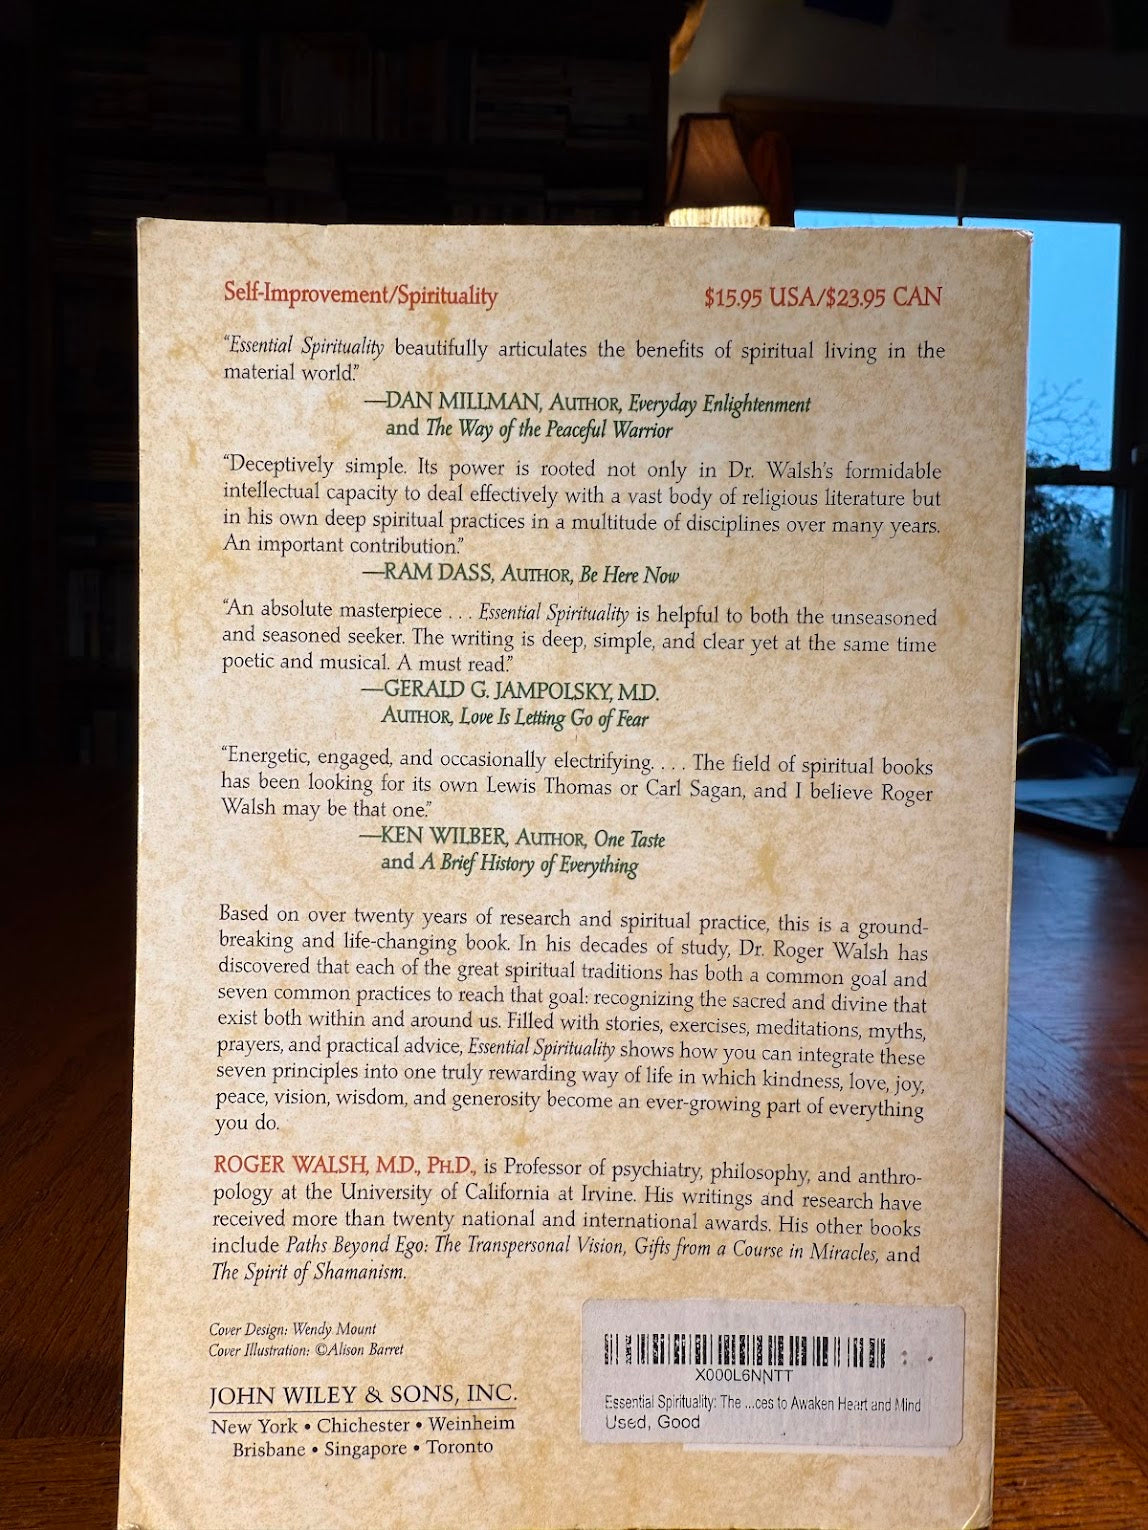 Self-Improvement/Spirituality
$15.95 USA/$23.95 CAN
“Essential Spirituality beautifully articulates the benefits of spiritual living in the
material world.”
—DAN MILLMAN, AUTHOR, Everyday Enlightenment
and The Way of the Peaceful Warrior
“Deceptively simple. Its power is rooted not only in Dr. Walsh’s formidable
intellectual capacity to deal effectively with a vast body of religious literature but
in his own deep spiritual practices in a multitude of disciplines over many years.
An important contribution.”
—RAM DASS, AUTHOR, Be Here Now
“An absolute masterpiece . . . Essential Spirituality is helpful to both the unseasoned
and seasoned seeker. The writing is deep, simple, and clear yet at the same time
poetic and musical. A must read.”
—GERALD G. JAMPOLSKY, M.D.
AUTHOR, Love Is Letting Go of Fear
“Energetic, engaged, and occasionally electrifying. . . . The field of spiritual books
has been looking for its own Lewis Thomas or Carl Sagan, and I believe Roger
Walsh may be that one.”
—KEN WILBER, AUTHOR, One Taste
and A Brief History of Everything
Based on over twenty years of research and spiritual practice, this is a ground-
breaking and life-changing book. In his decades of study, Dr. Roger Walsh has
discovered that each of the great spiritual traditions has both a common goal and
seven common practices to reach that goal: recognizing the sacred and divine that
exist both within and around us. Filled with stories, exercises, meditations, myths,
prayers, and practical advice, Essential Spirituality shows how you can integrate these
seven principles into one truly rewarding way of life in which kindness, love, joy,
peace, vision, wisdom, and generosity become an ever-growing part of everything
you do.
ROGER WALSH, M.D., PH.D., is Professor of psychiatry, philosophy, and anthro-
pology at the University of California at Irvine. His writings and research have
received more than twenty national and international awards. His other books
include Paths Beyond Ego: The Transpersonal Vision, Gifts from a Course in Miracles, and
The Spirit of Shamanism.
Cover Design: Wendy Mount
Cover Illustration: ©Alison Barret
JOHN WILEY & SONS, INC.
New York • Chichester • Weinheim
Brisbane • Singapore • Toronto
X000L6NNTT
Essential Spirituality: The ...ces to Awaken Heart and Mind
Used, Good